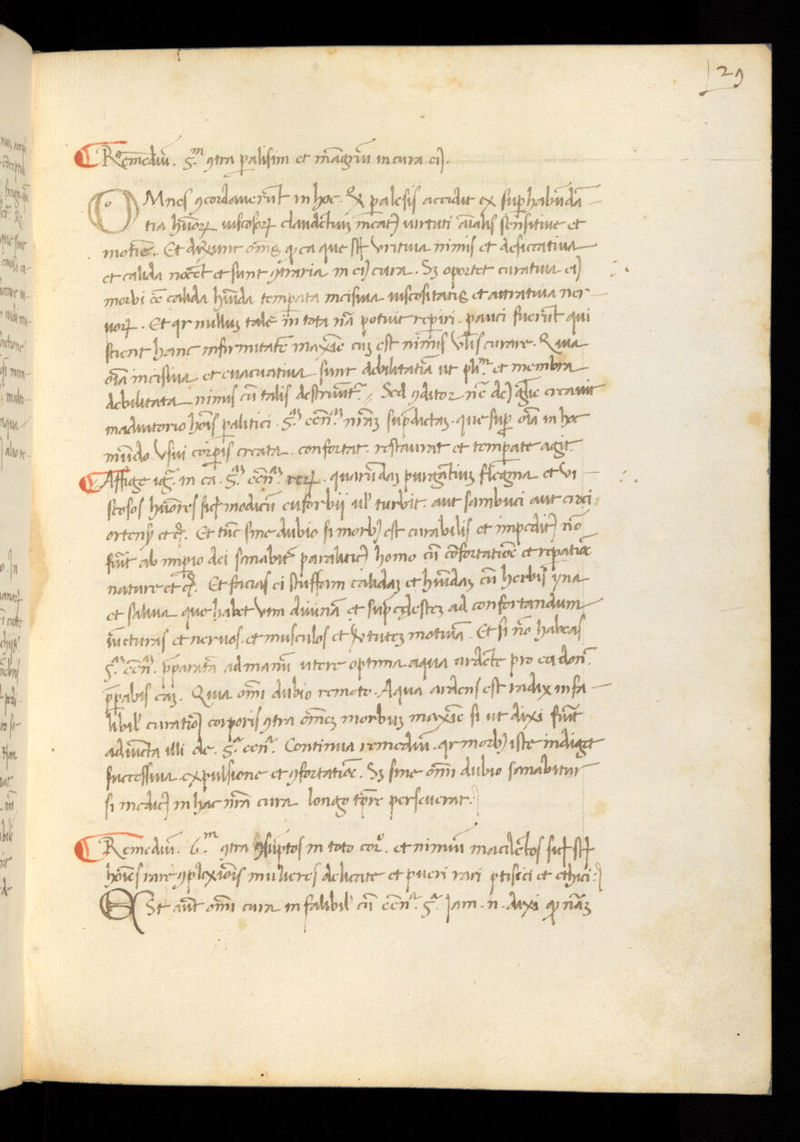 29
Remediu. 5m ɔtra paralisim et magnu in cura eiꝰ.
OMnes ɔcordaverut in hoc. Q palesis accidit ex superhabunda
tia humoꝝ viscosoꝝ claudetiu meatꝰ virtuti aialis sensitive et
motive. Et dixerut oms q ea que st Uritiva nimis et desiccativa
et calida nocet et sunt ɔtraria in eiꝰ cura. Sꝫ oportet curativa eiꝰ
morbi ee calida humida temperata incisiva viscositatis et attrativa ner
voꝝ. Et qr nullus tale in tota na potuit reperiri. pauci fuerut qui
scient hanc infirmitate maxie cu est nimis Utis curare. Quia
oia incisiva et evacuativa sunt debilitativa ut plm et membra
debilitata nimis cu talis destruutr. Sed ɔditor nre deꝰ gle creavit
in adiutorio hois palitici. 5m eenm nram supdictaꝫ. que sup oia in hoc
mudo Usui corporis creata. confortat restaurat et temperate agit.
Affige igr in ca. 5m eenm reꝝ. quarudaꝫ purgatiu flegma et vi
scosos humores sicut modicu euforbij vl turbit. aut sambuci aut croci
ortensis et c. Et tuc sine dubio si morbꝰ est curabilis et impeditꝰ no
fuit ab imperio dei sanabitr paraliticꝰ homo cu confortatioe et reparatioe
nature et c. Et facias ei stuffam calidaꝫ et humidaꝫ cu herbis yva
et salvia que habet Vim divina et supcelestem ad confortandum
iucturas et nervos. et musculos et Virtutem motiva. Et si no habeas
5m eenm. preparata ad manu utere optima aqua ardete pro ea donc
ppabis eaꝫ. Quia omi dubio remoto. Aqua ardens est radix infa
libil curatioꝰ corporis ɔtra omeꝫ morbum maxie si ut dixi fuit
adiucta illi de. 5a eenr. Continua remediu. qr morbꝰ iste indiget
successiva expulsione et ɔfortatioe. Sꝫ sine omi dubio sanabitur
si medicꝰ in hac nra cura longo tpre perseverat.
Remediu. 6m ɔtra ɔsuptos in toto cor. et nimiu maciletos sicut st
hoies rare ɔplexiois mulieres delicate et pueri rari ptisici et ethici.
ESt aut omi cura infalibil cu eenr. 5a Jam. n. dixi q nraꝫ